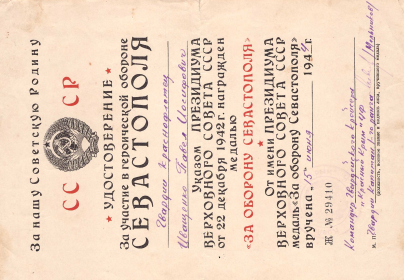 За нашу Советскую Родину
СС СР
УДОСТОВЕРЕНИЕ
За участие в героической обороне
СЕВАСТОПОЛЯ
Гвардии краснофлотец
Иващенко Павел Иосифович
Указом ПРЕЗИДИУМА
ВЕРХОВНОГО СОВЕТА СССР
от 22 декабря 1942 г. награжден
медалью
«ЗА ОБОРОНУ СЕВАСТОПОЛЯ»
От имени ПРЕЗИДИУМА
ВЕРХОВНОГО СОВЕТА СССР
медаль «За оборону Севастополя»
вручена „15" июня 1944 г.
Ж № 29410
Командир Гвардейского крейсера
„Красный Крым" ЧФ
Гвардии капитан 1го ранга
м. п.